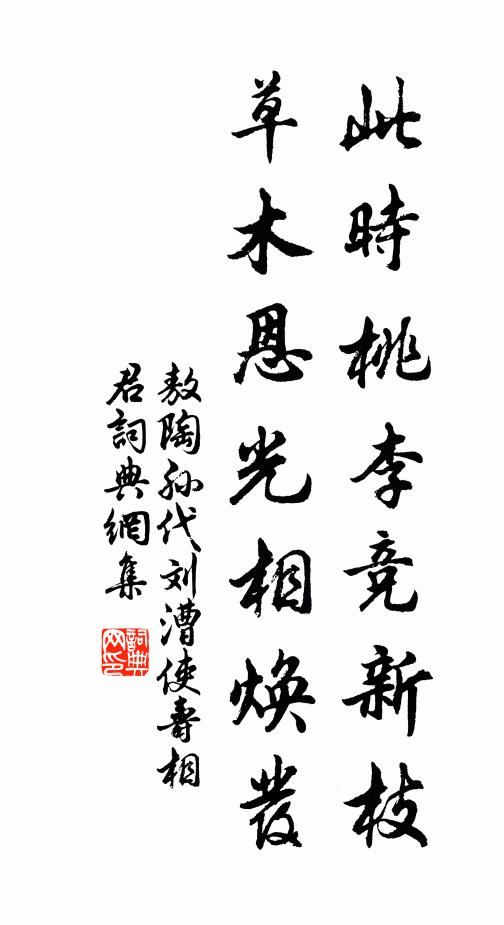 此時桃李竞新枝
草木恩光相焕發
敖陶孙代刘漕使壽相
君詞典網集
詞典网印